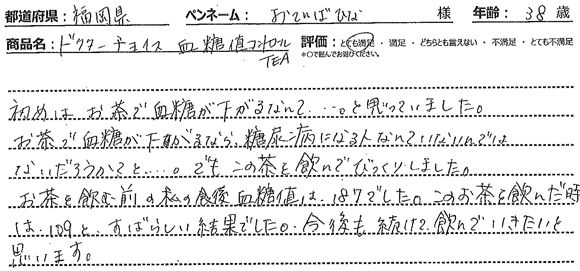 都道府県： 福岡県 ペンネーム： おでばひな 様 年齢： 38 歳
商品名： ドクターチョイス 血糖値コントロールTEA 評価： とても満足 ・ 満足 ・ どちらとも言えない ・ 不満足 ・ とても不満足
*○で囲んでお選びください。
初めは お茶で血糖が下がるなんて…。と思っていました。
お茶で血糖が下がるなら、糖尿病になる人なんていないんでは
ないだろうかと…。でも この茶を飲んでびっくりしました。
お茶を飲む前の私の食後血糖値は、187でした。このお茶を飲んだ時
は、109と、すばらしい結果でした。今後も続けて飲んでいきたいと
思います。